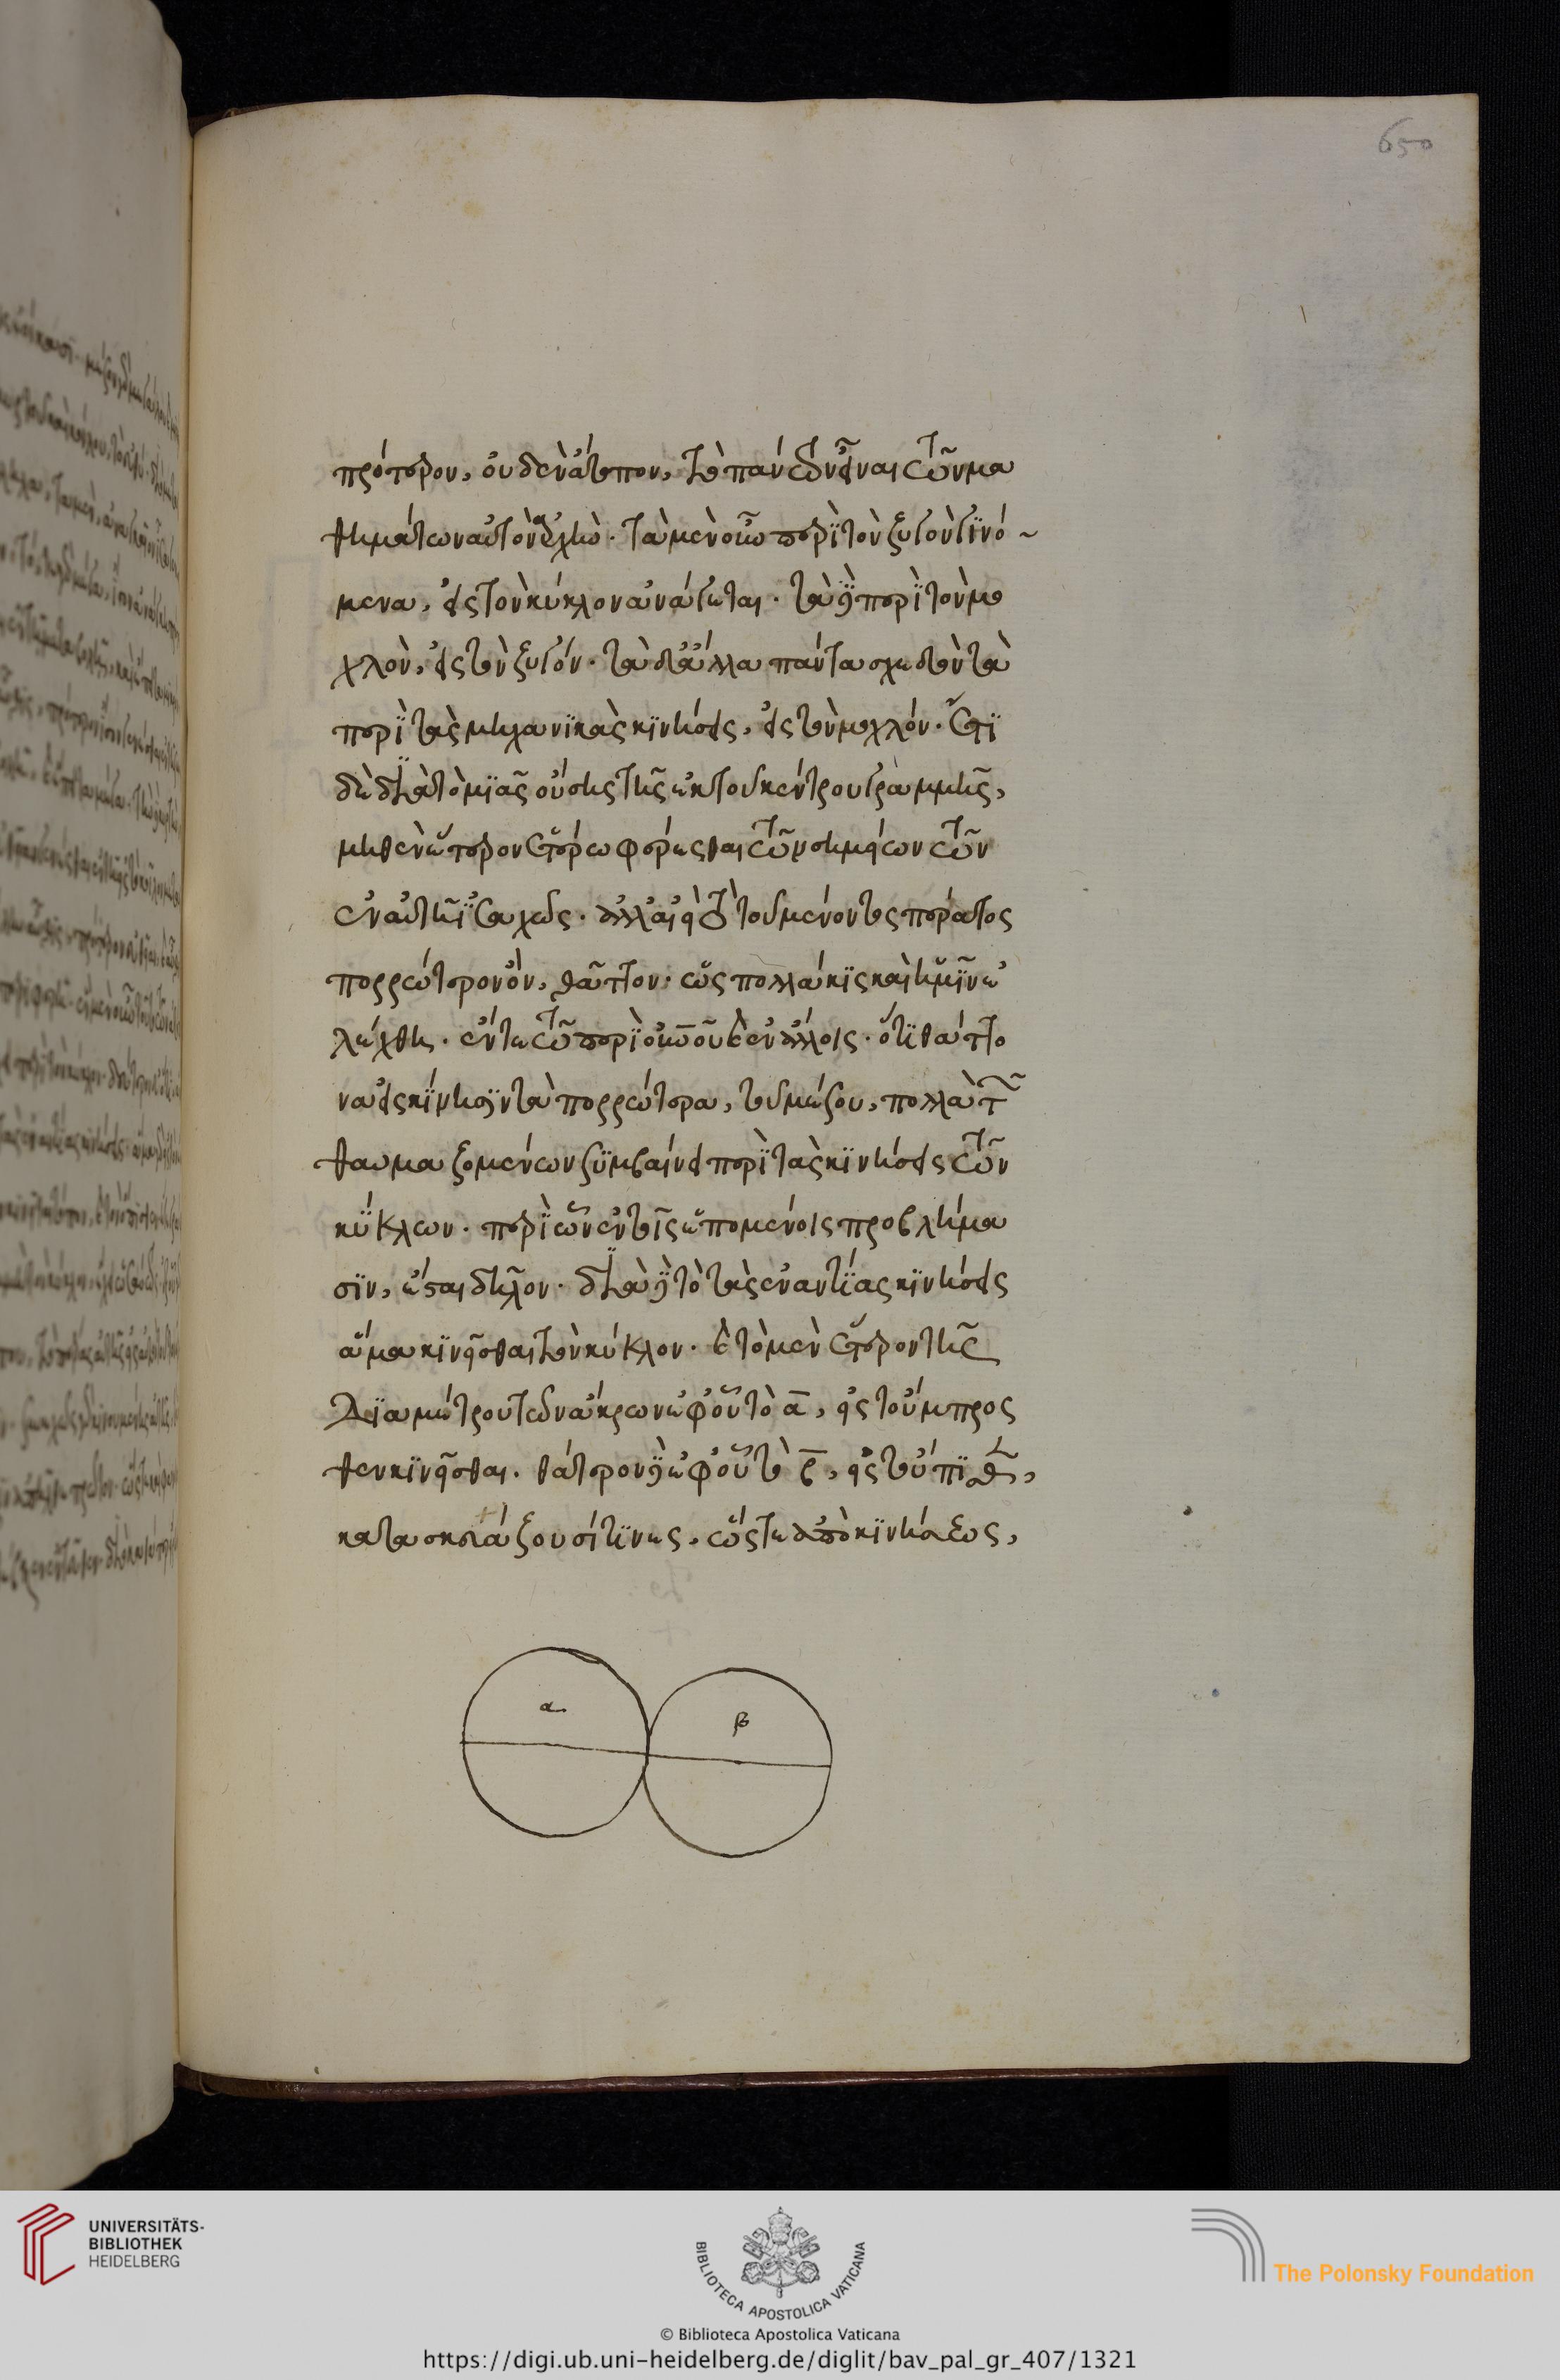 πρότερον, οὐδὲν ἄτοπον, τὸ πάντων εἶναι τῶν μα
θημάτων αὐτὸν ἀρχὴν· τὰ μὲν οὖν περὶ τὸν ζυγὸν γινό~
μενα, εἰς τὸν κύκλον ἀνάγεται· τὰ δὲ περὶ τὸν μο
χλὸν, εἰς τὸν ζυγόν· τὰ δ' ἄλλα πάντα σχεδὸν τὰ
περὶ τὰς μηχανικὰς κινήσεις, εἰς τὸν μοχλόν· ἔτι
δὲ διὰ τὸ μιᾶς οὔσης τῆς ἐκ τοῦ κέντρου γραμμῆς,
μηθὲν ἕτερον ἑτέρω φέρεσθαι τῶν σημείων τῶν
ἐν αὐτῆι ταχέως· ἀλλ' ἀεὶ τὸ τοῦ μένοντος πέρατος
πορρώτερον ὄν, θᾶττον· ὡς πολλάκις καὶ ἡμῖν ἐ
λέχθη· ἔν τε τῶ περὶ οὐνοῦ καὶ ἐν ἄλλοις· ὅτι θάττο
να εἰς κίνησιν τὰ πορρώτερα, τοῦ μέσου, πολλὰ τῶν
θαυμαζομένων ξυμβαίνει περὶ τὰς κινήσεις τῶν
κύκλων· περὶ ὧν ἐν τοῖς ἑπομένοις προβλήμα
σιν, ἔσται δῆλον· διὰ δὲ τὸ τὰς ἐναντίας κινήσεις
ἅμα κινεῖσθαι τὸν κύκλον· καὶ τὸ μὲν ἕτερον τῆς
διαμέτρου τῶν ἄκρων ἐφ' οὗ τὸ α, εἰς τοὔμπρος
θεν κινεῖσθαι· θάτερον δὲ ἐφ' οὗ τὸ β, εἰς τοὔπισθεν,
κατασκευάζουσί τινες, ὥστε ἀπὸ κινήσεως,
α
β
650
UNIVERSITÄTS-
BIBLIOTHEK
HEIDELBERG
BIBLIOTECA APOSTOLICA VATICANA
The Polonsky Foundation
© Biblioteca Apostolica Vaticana
https://digi.ub.uni-heidelberg.de/diglit/bav_pal_gr_407/1321